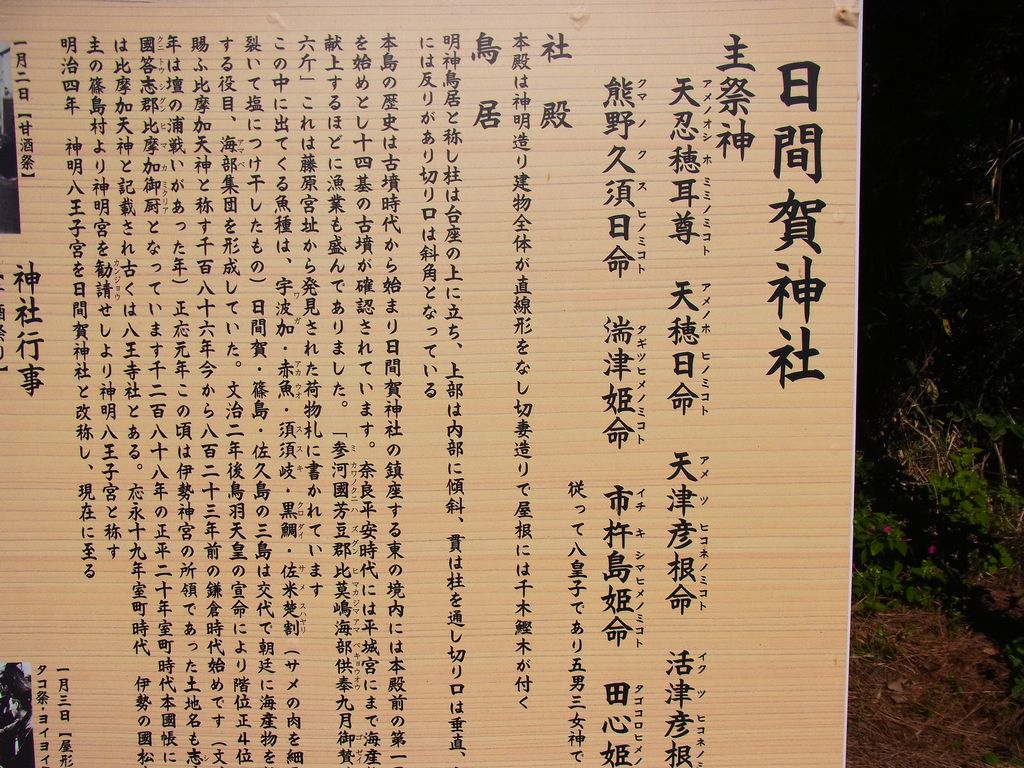 日間賀神社
主祭神
天忍穂耳尊 天穂日命 天津彦根命 活津彦根
アメノオシホミミノミコト アメノホヒノミコト アメツヒコネノミコト イクツヒコネノミ
熊野久須日命 湍津姫命 市杵島姫命 田心姫
クマノクスヒノミコト タギツヒメノミコト イチキシマヒメノミコト タゴコロヒメノ
従って八皇子であり五男三女神で
社殿
本殿は神明造り建物全体が直線形をなし切妻造りで屋根には千木鰹木が付く
鳥居
明神鳥居と称し柱は台座の上に立ち、上部は内部に傾斜、貫は柱を通し切り口は垂直、
には反りがあり切り口は斜角となっている
本島の歴史は古墳時代から始まり日間賀神社の鎮座する東の境内には本殿前の第一
を始めとし十四基の古墳が確認されています。奈良平安時代には平城宮にまで海産
献上するほどに漁業も盛んでありました。「参河國芳豆郡比莫嶋海部供奉九月御贄
ミカワノクニハズグンヒマカジマアマベキョウオウ ゴゼイ
六斤」これは藤原宮址から発見された荷物札に書かれています
この中に出てくる魚種は、宇波加・赤魚・須須岐・黒鯛・佐米楚割(サメの肉を細
ワガ アカウオ ススキ クロダイ サメスハヤリ
裂いて塩につけ干したもの)日間賀・篠島・佐久島の三島は交代で朝廷に海産物を
する役目、海部集団を形成していた。文治二年後鳥羽天皇の宣命により階位正4位
アマベ
賜ふ比摩加天神と称す千百八十六年今から八百二十三年前の鎌倉時代始めです(文
年は壇の浦戦いがあった年)正応元年この頃は伊勢神宮の所領であった土地名も志
シ
國答志郡比摩加御厨となっています千二百八十八年の正平二十年室町時代本國帳に
クニトウシグンヒマカミクリア
は比摩加天神と記載され古くは八王寺社とある。応永十九年室町時代 伊勢の國松
主の篠島村より神明宮を勧請せしより神明八王子宮と称す
カンジョウ
明治四年 神明八王子宮を日間賀神社と改称し、現在に至る
神社行事
一月二日【甘酒祭】
一月三日【屋形
タコ祭・ヨイヨイ